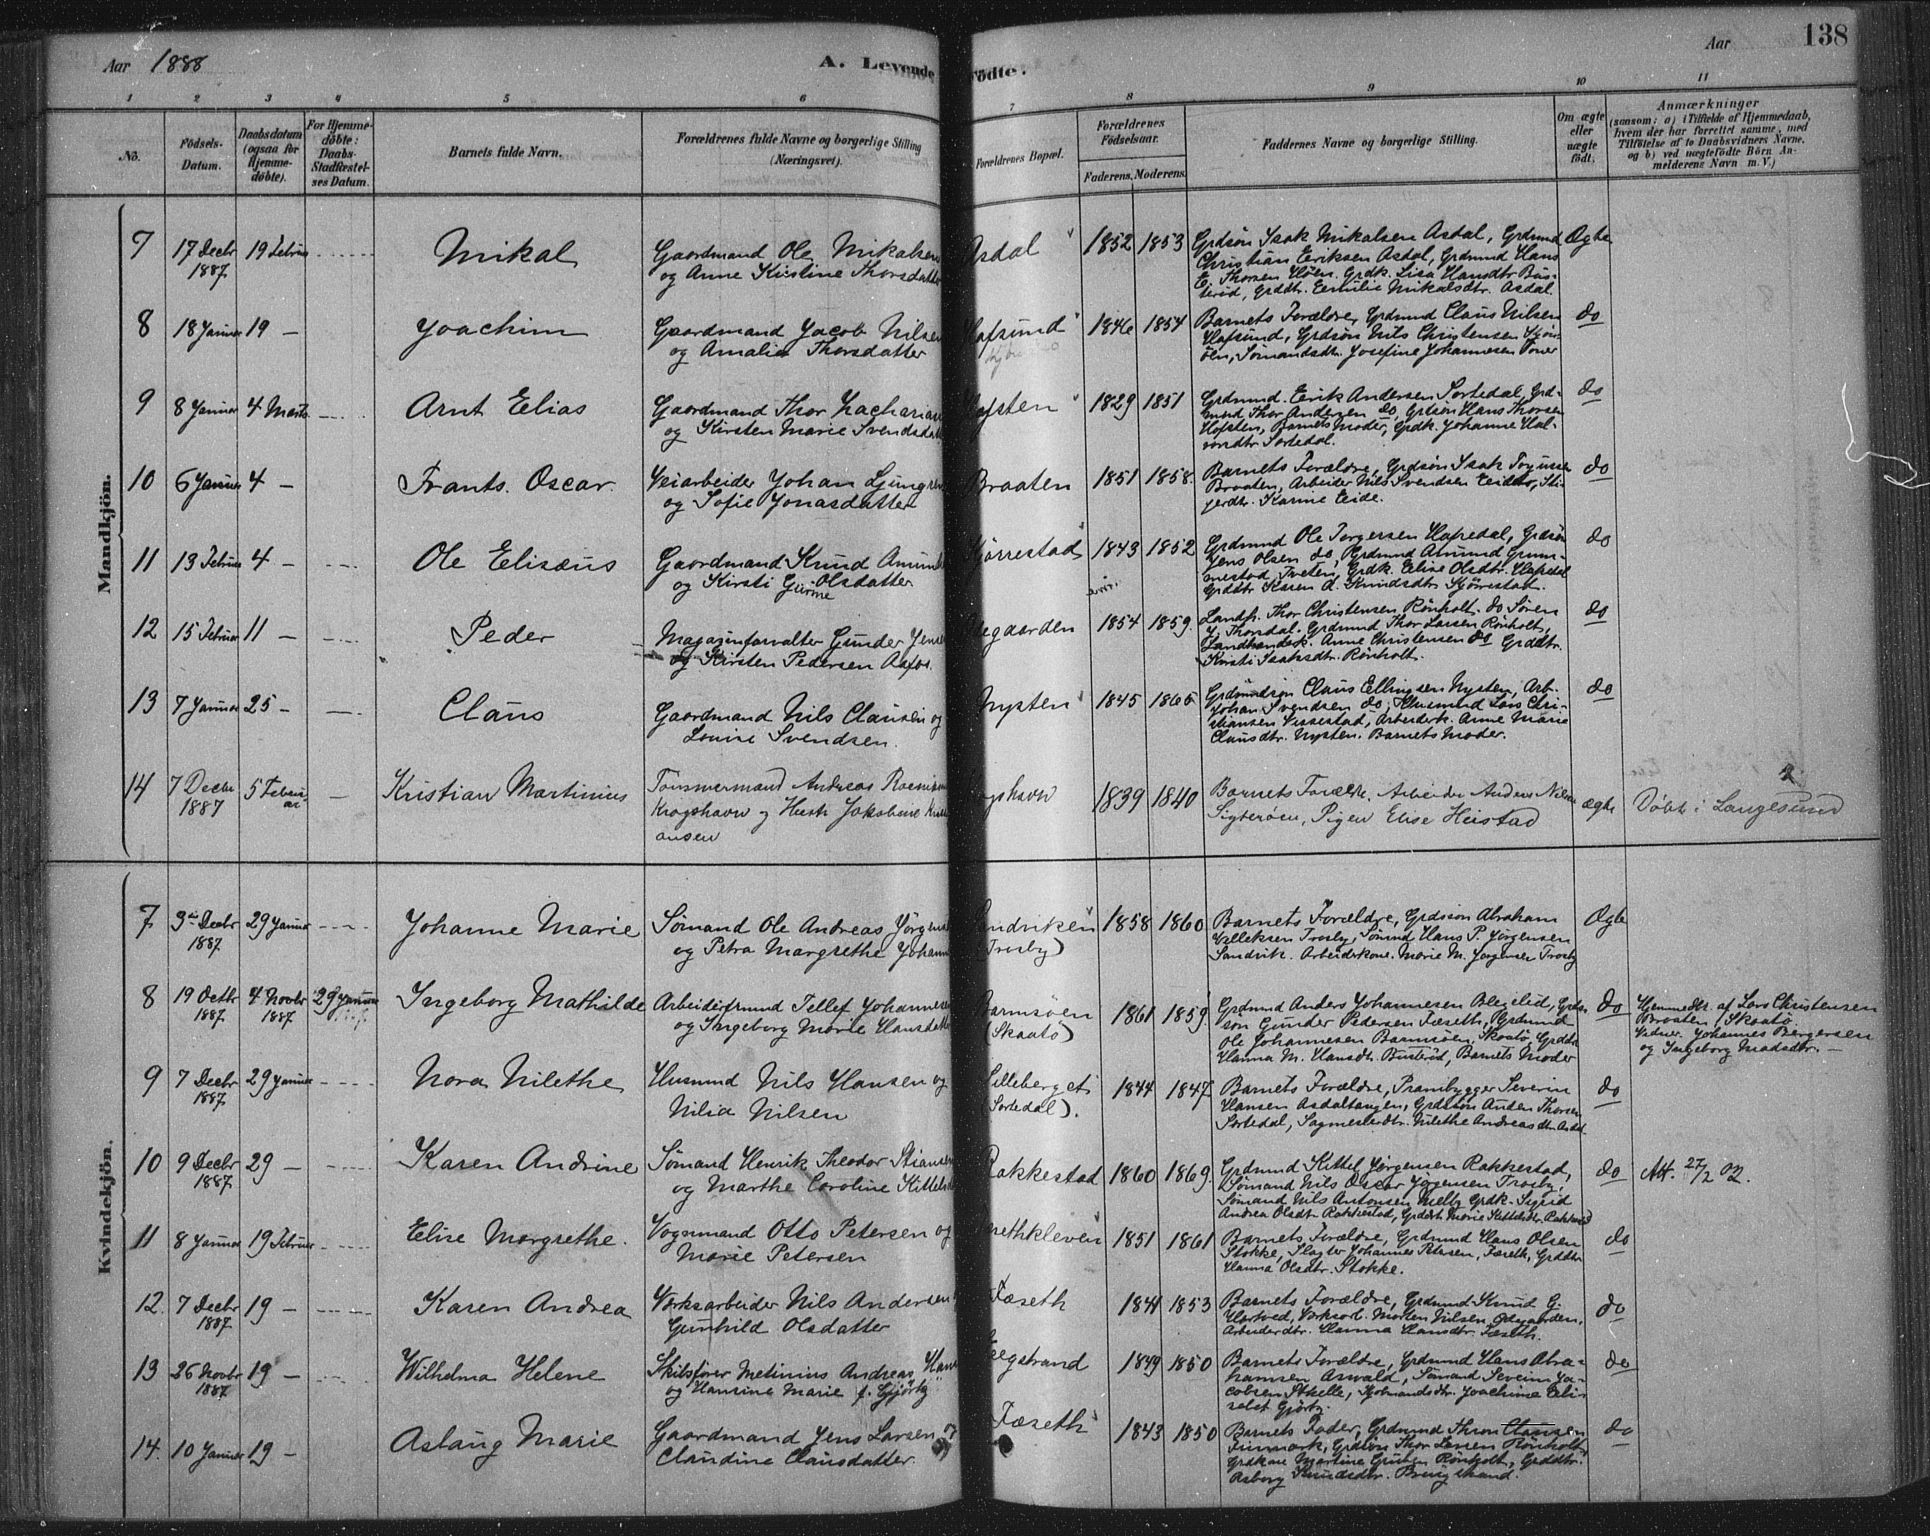 Aar 1888
A. Levende Fødte.
Aar
138
1 2 3 4 5 6 7 8 9 10 11
No.
Födsels-Datum.
Daabsdatum (ogsaa for Hjemmedöbte).
For Hjemmedöbte: Daabs-Stadfæstelses Datum.
Barnets fulde Navn.
Forældrenes fulde Navne og borgerlige Stilling (Næringsvei).
Forældrenes Bopæl.
Forældrenes Födselsaar.
Faderens. Moderens.
Faddernes Navne og borgerlige Stilling.
Om ægte eller uægte födt.
Anmærkninger
(saasom: a) i Tilfælde af Hjemmedaab,
hvem der har forrettet samme, med
Tilföielse af to Daabsvidners Navne,
og b) ved uægtefödte Börn An-
melderens Navn m. V.)
Mandkjön.
7 17 Decbr 1887 19 Februar Mikal
Gaardmand Ole Mikalsen
og Anne Kirstine Thorsdatter
Asdal 1852 1853
Grdsön Isak Mikalsen Asdal, Grdmnd
Christian Eriksen Asdal, Grdmnd Hans
E. Thorsen Höen. Grdk. Lisa Hansdtr Bus-
teröd, Grddtr. Emilie Mikalsdtr. Asdal.
Ægte
8 18 Januar 19 — Joachim
Gaardmand Jacob Nilsen
og Amalia Thorsdatter
Hafsund 1846 1854
Barnets Forældre, Grdmnd Claus Nilsen
Hafsund, Grdsön Nils Christensen
Sömandsdtr. Josefine Johannesen
do
9 8 Januar 4 Marts Arnt Elias
Gaardmand Thor Zacharias
og Kirsten Marie Svendsdatter
Hofsten 1829 1851
Grdmnd. Erik Andersen Sortedal, Grd-
mnd Thor Andersen do, Grdsön Hans Thorsen
Hofsten, Barnets Moder, Grdk. Johanne Hal-
vorsdtr Sortedal.
do
10 6 Januar 4 — Frants. Oscar.
Veiarbeider Johan Ljungren
og Sofie Jonasdatter
Braaten 1851 1858.
Barnets Forældre, Grdsön Isak
Braaten, Arbeider Nils Svendsen
Karine Eide.
do
11 13 Februar 4 — Ole Elisæus
Gaardmand Knud Amund
og Kirsti Gurine Olsdatter
Sjörrestad 1843 1852
Grdmnd Ole Torgersen Hafredal, Grdsön
Jens Olsen do, Grdmnd Amund Grum-
mestad Tveten, Grdk. Eline Olsdtr. Hafredal
Grddtr Karen A. Knudsdtr Sjörestad.
do
12 15 Februar 11 — Peder
Magasinforvalter Gunder Jensen
og Kirsten Pedersen Aafos.
Ødegaarden 1854 1859.
Landh. Thor Christensen Rönholt. do Sören
J. Thorsdal. Grdmnd Thor Larsen Rönholt,
Landhandlerk. Anne Christensen do Grddtr.
Kirsti Isaksdtr. Rönholt.
do
13 7 Januar 25 — Claus
Gaardmand Nils Clausen og
Louise Svendsen.
Nysten 1845 1865
Grdmandsön Claus Ellingsen Nysten, Arb.
Johan Svendsen do, Husmnd Lars Chri-
stiansen Vissestad, Arbeiderk. Anne Marie
Clausdtr. Nysten. Barnets Moder.
do
14 7 Decbr 1887 5 Februar Kristian Martinius
Tömmermand Andreas Rasmussen
Krogshavn og Hustr. Jakobine Kristi-
ansen
Krogshavn 1839 1840
Barnets Foreldre. Arbeider Anders Nilsen
Sigterøen, Pigen Elise Heistad
ægte
Döbt i Langesund
Kvindekjön.
7 3die Decbr 1887 29 Januar Johanne Marie
Sömand Ole Andreas Jörgensen
og Petra Margrethe Johann
Sandviken (Trosby) 1858 1860
Barnets Forældre, Grdsön Abraham
Velleksen Trosby, Sömnd Hans P. Jörgensen
Sandvik. Arbeiderkone. Marie M. Jörgensen Trosby
Ægte
8 19 Octbr 1887 4 Novbr 1887 29 Januar Ingeborg Mathilde
Arbeidermnd Tellef Johannesen
og Ingeborg Marie Hansdatter
Barmsöen (Skaatö) 1861 1859
Grdmnd Anders Johannesen Blegelid, Grd-
sön Gunder Pedersen Fæseth, Grdmnd
Ole Johannesen Barmsöen Skaatö Grddtr
Hanna M. Hansdtr. Busteröd, Barnets Moder
do
Hjemmedbt. af Lars Christensen
Braaten, Skaatö
Vidner Johannes Bergersen
og Ingeborg Madsdtr. —
9 7 Decbr 1887 29 Januar Nora Nilethe
Husmnd Nils Hansen og
Nilia Nilsen
Lilleberget (Sortedal). 1844 1847
Barnets Forældre, Prambygger Severin
Hansen Asdaltangen, Grdsön Auden Thorsen
Sortedal, Sagmesterdtr. Nilethe Andreasdtr. Asdal
do
10 9 Decbr 1887 29 — Karen Andrine
Sömand Henrik Theodor Stiansen
og Marthe Caroline Kittelsd
Rakkestad 1860 1869.
Grdmnd Kittel Jörgensen Rakkestad,
Sömand Nils Oscar Jörgensen Trosby,
Sömand Nils Antonsen Melby Grdk. Sigrid
Andrea Olsdtr Rakkestad, Grddtr Marie Kittelsdtr Rakkestad
do
Att. 27/2 02.
11 8 Januar 19 Februar Elise Margrethe.
Vognmand Otto Petersen og
Marie Petersen
Fæsethkleven 1851 1861
Barnets Forældre, Grdmnd Hans Olsen
Stokke, Slagter Johannes Petersen, Fæseth, Grddtr
Hanna Olsdtr. Stokke.
do
12. 7 Decbr 1887 19 — Karen Andrea
Værksarbeider Nils Andersen
Gunhild Olsdatter
Fæseth 1841 1853
Barnets Forældre, Grdmnd Knud G.
Hartved, Værksarb. Morten Nilsen Ödegaarden,
Arbeiderdtr. Hanna Hansdtr. Fæseth.
do
13 26 Novbr 1887 19 — Wilhelma Helene
Skibsförer Metinius Andreas Hans
og Hansine Marie f. Gjörby
1849 1850
Barnets Forældre, Grdmnd Hans Abra-
hamsen Arvald, Sömand Severin Ja-
cobsen Stkelle, Joachima Eli-
sabet Gjörby.
do
14. 10 Januar 19 — Aslaug Marie
Gaardmand Jens Larsen og
Claudine Clausdatter.
Fæseth 1843 1850
Barnets Fader, Grdmnd Thron Clausen
Finmark, Grdsön Thor Larsen Rönholt,
Grdkone Martine Rönholt, Grddtr.
Asborg Knudsdtr.
do